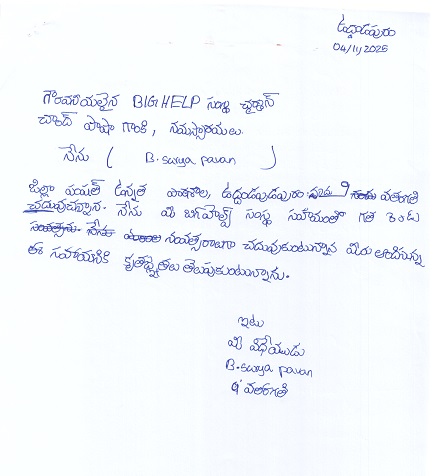 ఉద్దండపురం
04/11/2025
గౌరవనీయులైన BIGHELP సంస్థ చైర్మన్
చాంద్ పాషా గారికి, నమస్కారములు.
నేను ( B. surya pavan )
జిల్లా పరిషత్ ఉన్నత పాఠశాల, ఉద్దండపురం 9 తరగతి
చదువుచున్నాను. నేను మీ బిగ్‌హెల్ప్ సంస్థ సహాయంతో గత రెండు
నేను సంవత్సరాలుగా చదువుకుంటున్నాను మీరు అందిస్తున్న
ఈ సహాయానికి కృతజ్ఞతలు తెలుపుకుంటున్నాను.
ఇట్లు
మీ విధేయుడు
B. surya pavan
9వ తరగతి